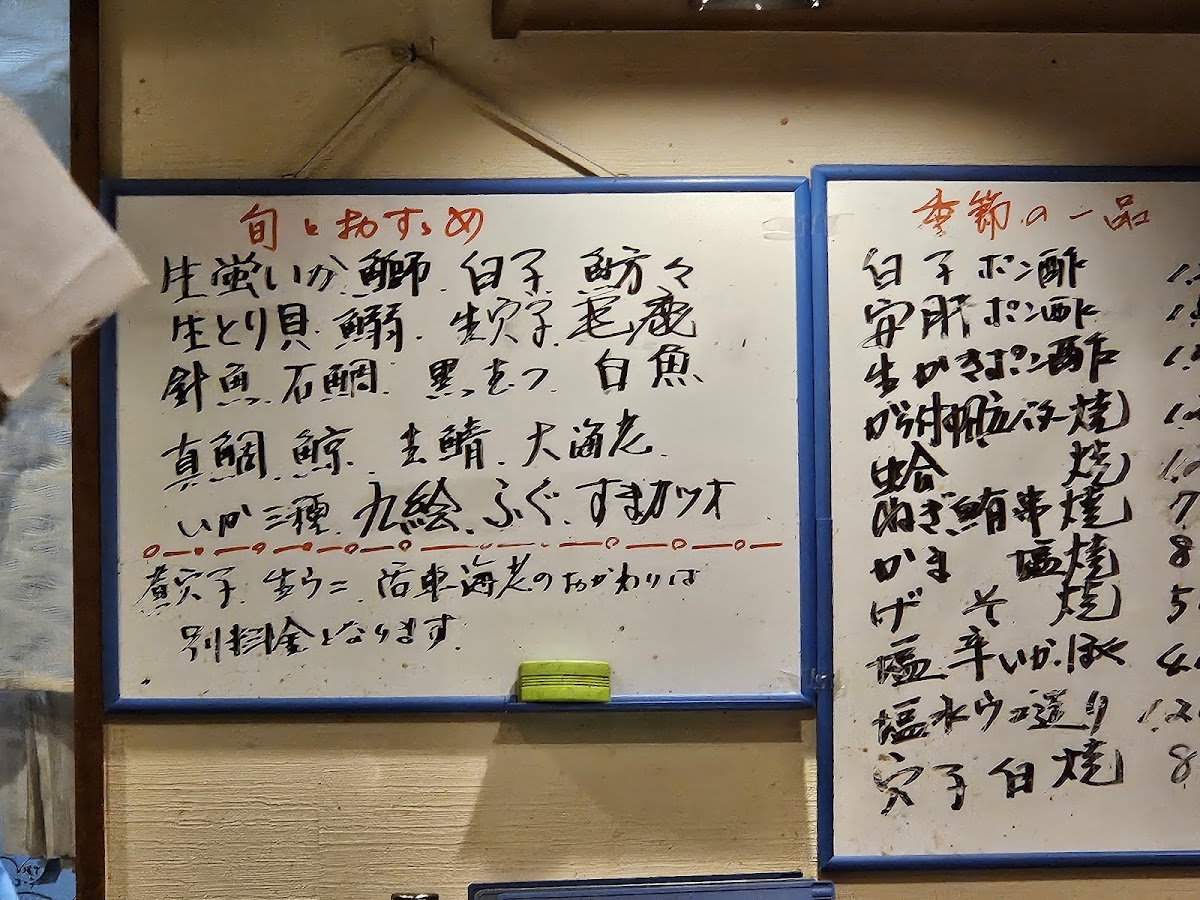 旬とおすゝめ
生蛍いか 鰤 白子 魴々
生とり貝 鰯 生穴子 毛鹿
針魚 石鯛 黒むつ 白魚
真鯛 鯨 生鯖 大海老
いか三種 九絵 ふぐ すまカツオ
煮穴子 生ウニ 活車海老のおかわりは
別料金となります
季節の一品
白子ポン酢
安肝ポン酢
生かきポン酢
から付帆立バター焼
蛤 焼
ねぎ鮪串焼 7
かま 塩焼 8
げそ焼 5
塩辛いか・ほや
塩水ウニ造り 1.2
穴子白焼 8